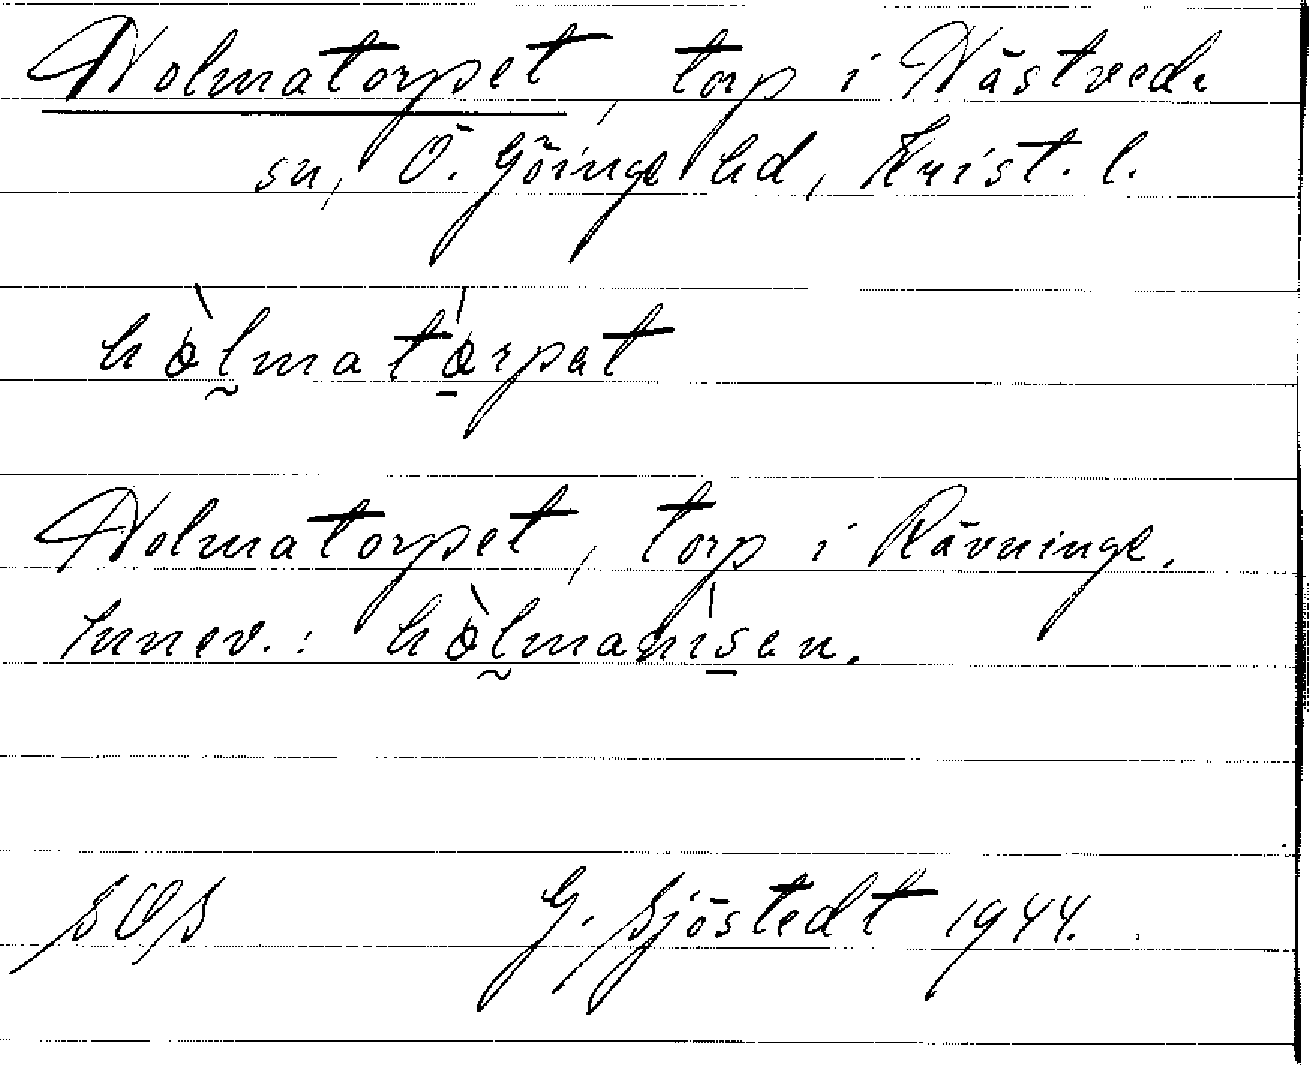 Holmatorpet, torp i Hästveda
sn, Ö. Göinge hd, Krist. l.
hòlmatórpat
Holmatorpet, torp i Rävninge.
Innev.: hòlmanisen.
SOS G. Sjöstedt 1944.